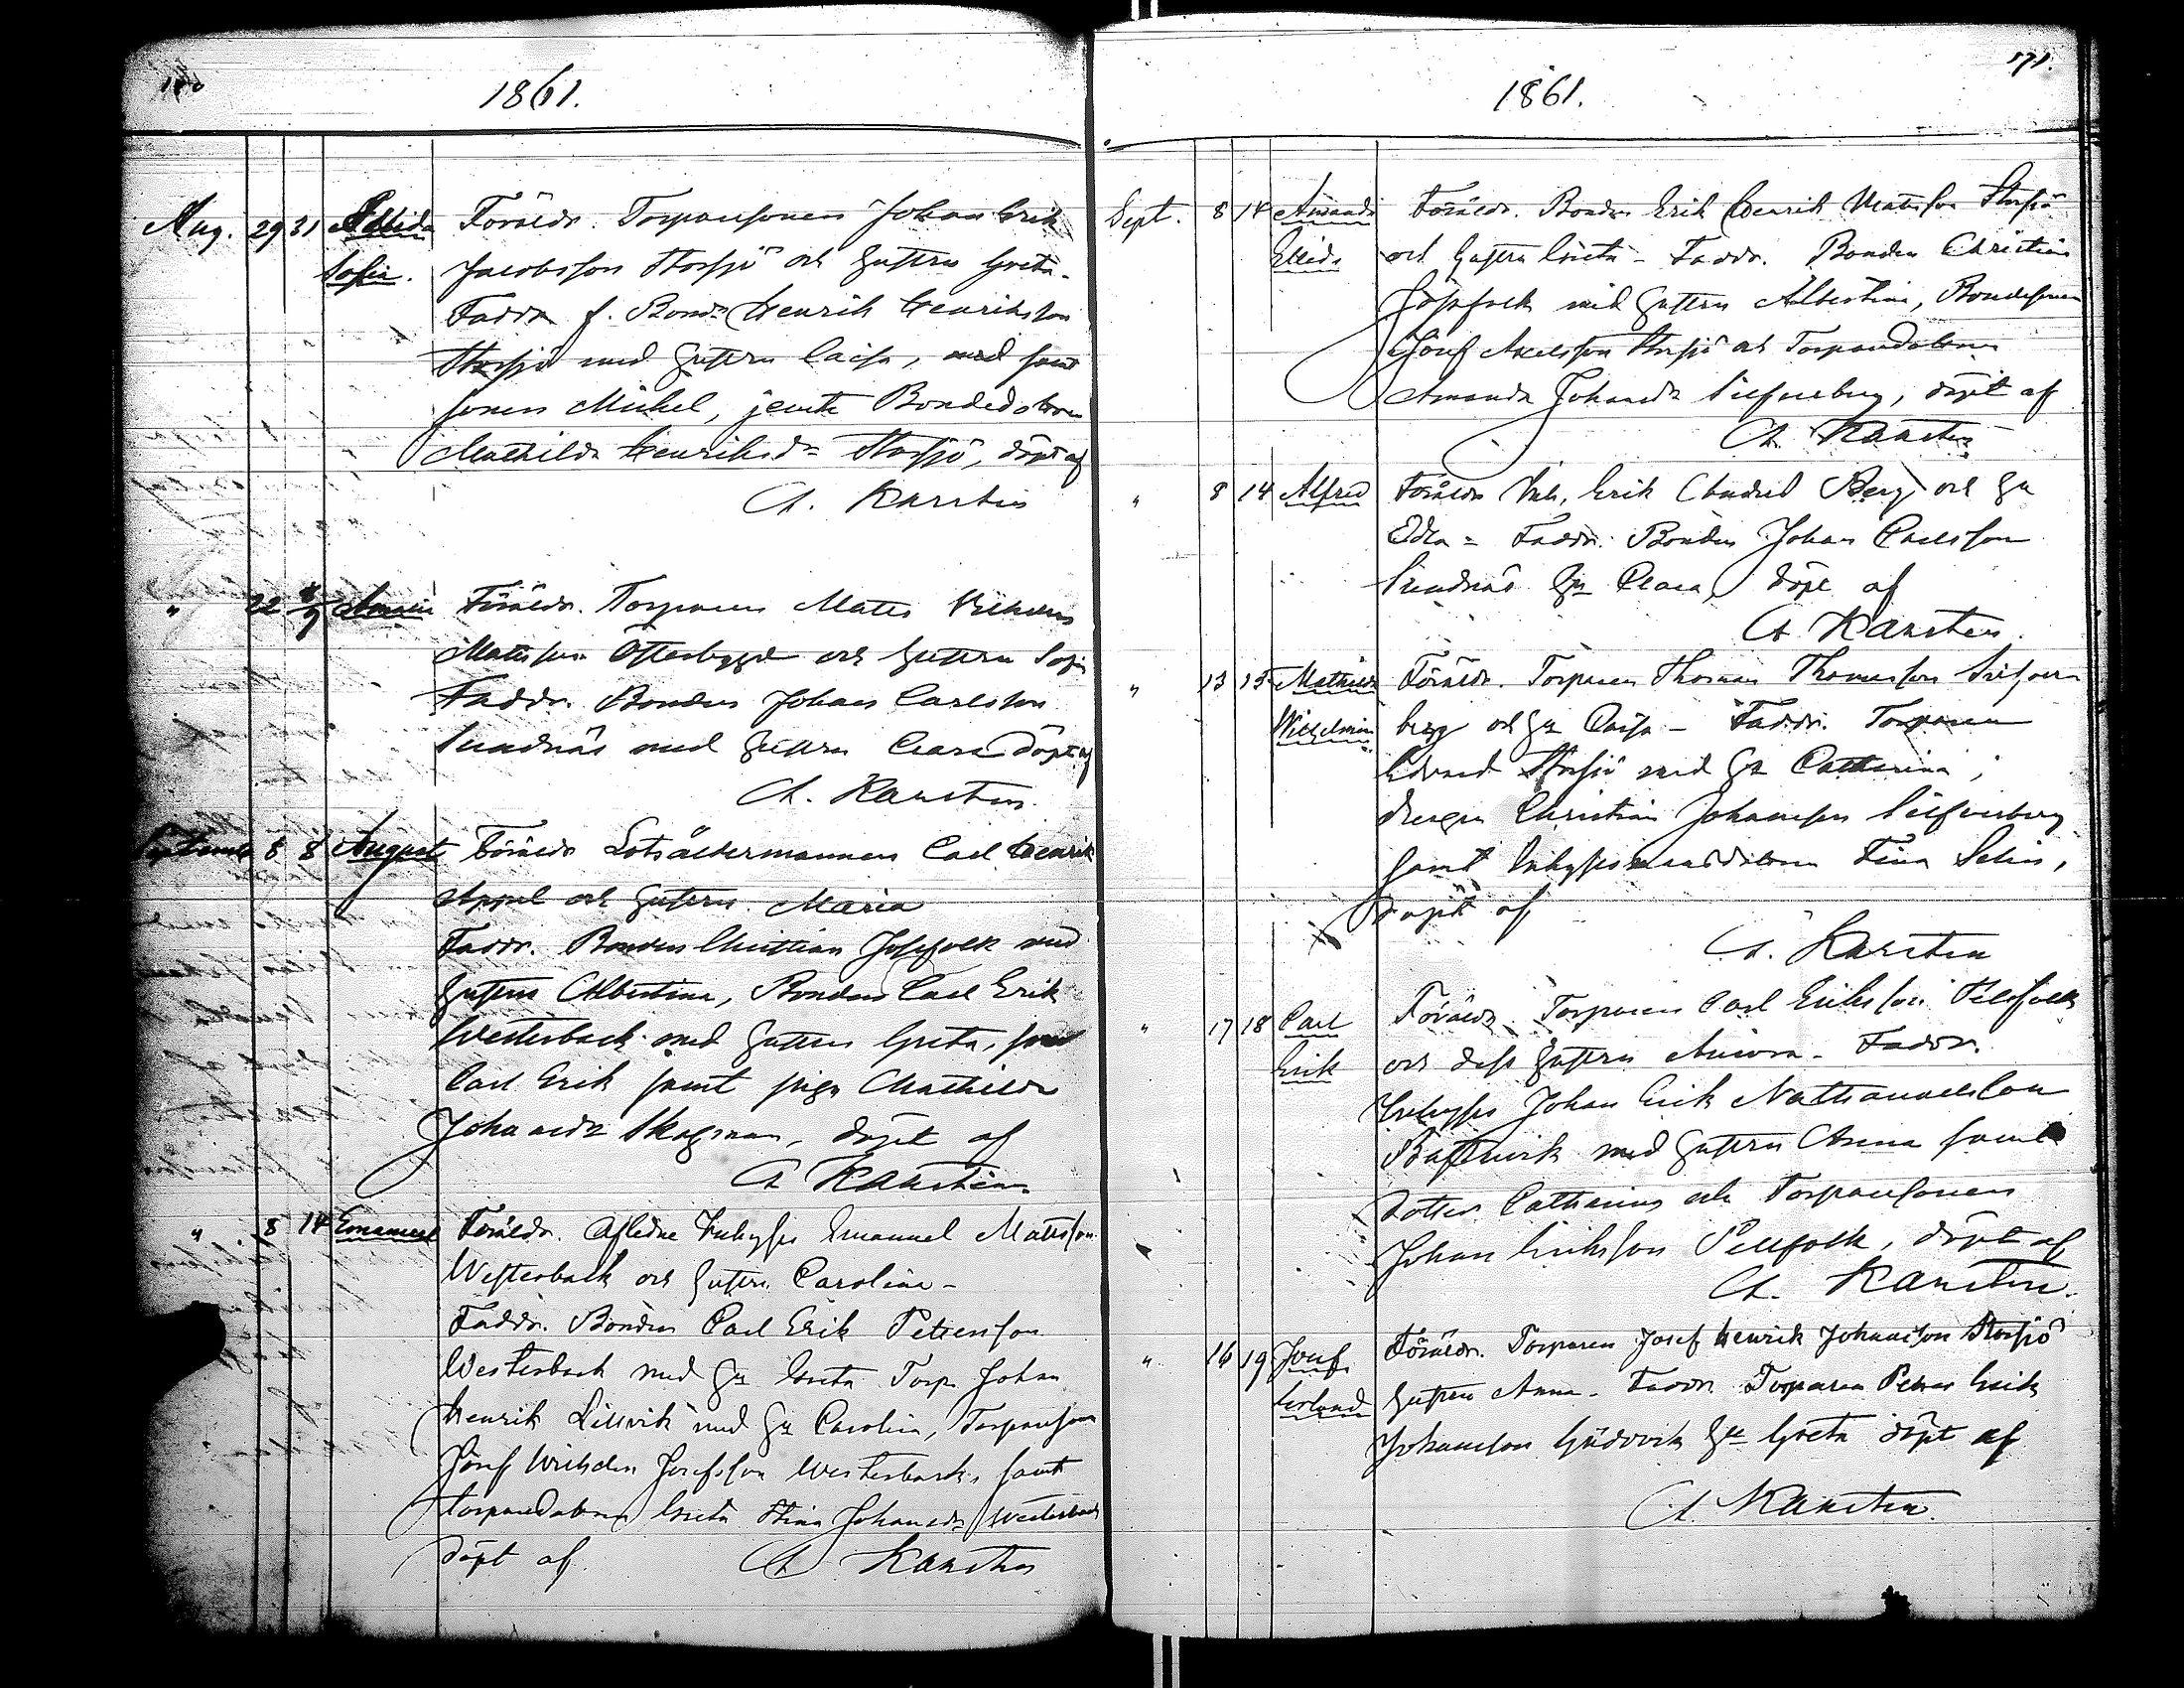 1861.
Aug. 29 31 Sofia.
Föräldr. Torparesonen Johan Erik
Jacobsson Storsjö och Hustru Greta.
Faddr. f. Bond. Henrik Henriksson
Storsjö med Hustru Caisa, med samt
sonen Michel, jemte Bondedotron
Mathilda Henriksdr Storsjö, döpt af
A. Karsten
" 22 8/9
Föräldr. Torparen Matts Vilhelm
Mattsson Österbygge och Hustru Sofia
Faddr. Bonden Johan Carlsson
Sundnäs med Hustru Clara döpt af
A. Karsten.
September 8 8 August
Föräldr Lotsåldermannen Carl Henrik
Appel och Hustru Maria
Faddr. Bonden Christian Josfolk med
Hustru Albertina, Bonden Carl Erik
Westerback med Hustru Greta, son
Carl Erik samt piga Mathilda
Johansdr Skogman, döpt af
A Karsten.
" 8 14 Emanuel
Föräldr. Aflidne Inhyses Emanuel Mattsson
Westerback och Hustru Carolina -
Faddr. Bonden Carl Erik Petersson
Westerback med Hu Greta Torp. Johan
Henrik Lillvik med Hu Carolin, Torpareson
Josef Wilhelm Josefsson Westerback, samt
torparedotron Greta Stina Johansdr Westerback
döpt af A Karsten
1861.
171.
Sept. 8 14 Amanda
Föräldr. Bonden Erik Henrik Mattsson Storsjö
och Hustru Greta - Faddr. Bonden Christian
Josfolk med Hustru Albertina, Bondesonen
Josef Axelsson Storsjö och Torparedotron
Amanda Johansdr Silfverberg, döpt af
A Karsten
" 8 14 Alfred
Föräldr Inh. Erik Berg och Hu
Edla - Faddr. Bonden Johan Carlsson
Sundnäs Hu Clara, döpt af
A Karsten.
" 13 15 Mathilda Wilhelmina
Föräldr. Torparen Thomas Thomasson Silfver-
berg och Hu Caisa - Faddr. Torparen
Edvard Storsjö med Hu Catharina,
drengen Christian Johansson Silfverberg
samt Inhysesmansdotron Fina
döpt af
A. Karsten
" 17 18 Carl Erik
Föräldr. Torparen Carl Eriksson Pellfolk
och dess Hustru Aurora - Faddr.
Inhyses Johan Erik Nathanaelsson
med Hustru Anna samt
dotter Catharina och Torparesonen
Johan Eriksson Pellfolk, döpt af
A. Karsten.
" 16 19 Josef Erland
Föräldr. Torparen Josef Henrik Johansson Storsjö
Hustru Anna - Faddr. Torparen Petter Erik
Johansson Hu Greta döpt af
A. Karsten.